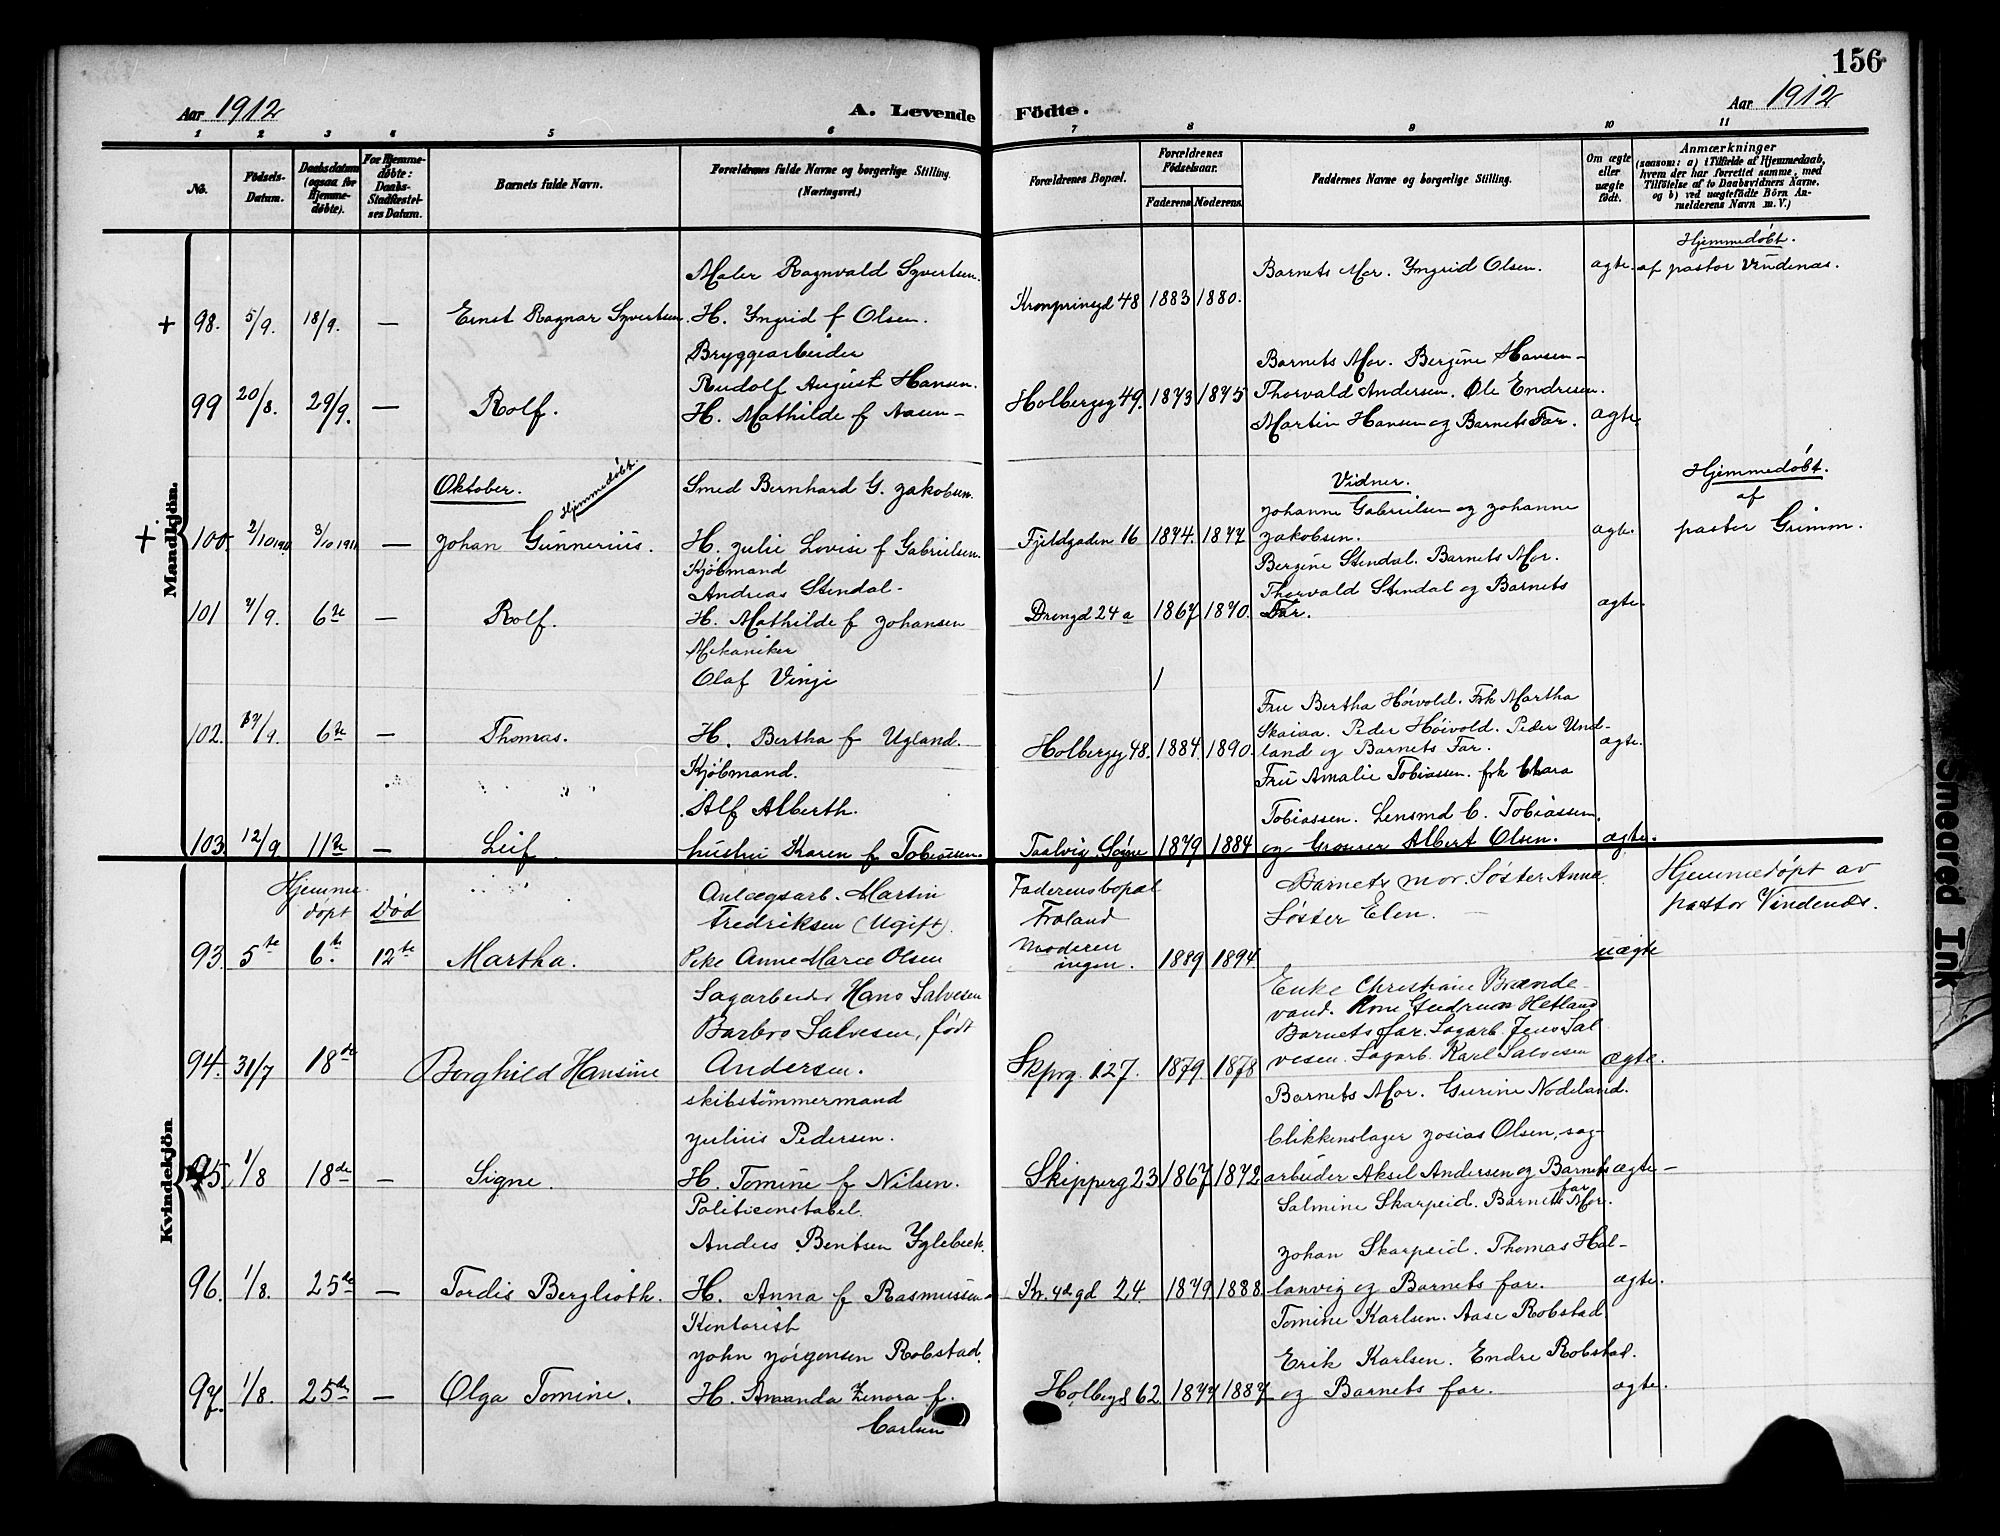 156
Aar 1912
A. Levende Födte.
Aar 1912
1 2 3 4 5 6 7 8 9 10 11
No.
Födsels-Datum.
Daabsdatum (ogsaa for Hjemme-döbte).
For Hjemme-döbte: Daabs-Stadfæstelses Datum.
Barnets fulde Navn.
Forældrenes fulde Navne og borgerlige Stilling. (Næringsvei.)
Forældrenes Bopæl.
Forældrenes Födselsaar.
Faderens. Moderens.
Faddernes Navne og borgerlige Stilling.
Om ægte eller uægte födt.
Anmærkninger
(saasom: a) i Tilfælde af Hjemmedaab,
hvem der har forrettet samme, med
Tilföielse af to Daabsvidners Navne.
og b) ved uægtefödte Börn An-
melderens Navn m. V.)
Mandkjön.
Maler Ragnvald Syvertsen.
+ 98. 5/9. 18/9. — Ernst Ragnar Syvertsen. H. Yngrid f Olsen.
Kronprinsgd 48 1883 1880.
Barnets Mor. Yngrid Olsen.
ægte.
Hjemmedøbt.
af pastor Vindenæs.
Bryggearbeider
Rudolf August Hansen.
99 20/8. 29/9. — Rolf. H. Mathilde f Aasen —
Holbergsg 49. 1873 1875
Barnets Mor. Bergine Hansen —
Thorvald Andersen. Ole Endresen.
Martin Hansen og Barnets Far.
ægte
Oktober.
Hjemmedøbt.
Smed Bernhard G. Jakobsen
+ 100. 2/10 1911 3/10 1911 — Johan Gunnerius. H. Julie Lovise f Gabrielsen.
Fjeldgaden 16 1874. 1877
Vidner.
Johanne Gabrielsen og Johanne
Jakobsen.
ægte.
Hjemmedøbt.
af
pastor Grimm.
Kjøbmand
Andreas Stendal.
101 7/9. 6te — Rolf. H. Mathilde f Johansen
Drengd 24 a 1867 1870.
Bergine Stendal. Barnets Mor.
Thorvald Stendal og Barnets
Far.
ægte.
Mekaniker
Olaf Vinje
102. 17/9. 6te — Thomas. H. Bertha f Ugland.
Holbergg 48. 1884 1890.
Fru Bertha Høivold. Frk Martha
Skaiaa. Peder Høivold. Peder Und-
land og Barnets Far.
ægte.
Kjøbmand.
Alf Alberth.
103. 12/9 11te — Leif. hustru Karen f Tobiassen.
Taalvig. Søgne 1879 1884
Fru Amalie Tobiassen. frk Clara
Tobiassen. Lensmd C. Tobiassen.
og Grosserer Albert Olsen.
ægte.
Kvindekjön
Hjemme-
døpt Død
Anlægsarb. Martin
Fredriksen (Ugift).
93. 5te 6te 12te Martha. Pike Anne Marie Olsen
Faderens bopæl
Froland
Moderen
ingen. 1889 1894
Barnets mor. Søster Anna
Søster Elen. —
uægte
Hjemmedøpt av
pastor Vindenæs.
Sagarbeider Hans Salvesen
Barbro Salvesen, født
94. 31/7 18de Borghild Hansine Andersen.
Skprg. 127. 1879 1878
Enke Christiane Brænde-
vand. Kone Gudrun Hetland
Barnets far. Sagarb. Jens Sal
vesen. Sagarb. Karl Salvesen
ægte.
skibstømmermand
Julius Pedersen.
95. 1/8 18de — Signe. H. Tomine f Nilsen.
Skipperg 23 1867 1872
Barnets Mor. Gurine Nodeland.
blikkenslager Josias Olsen, sag-
arbeider Aksel Andersen og Barnets
far
ægte —
Politiconstabel.
Anders Bentsen Yglebæk.
96. 1/8. 25de — Tordis Berglioth. H. Anna f Rasmussen
Kr. 4d gd 24. 1879 1888
Salmine Skarpeid. Barnets Mor.
Johan Skarpeid. Thomas Hal-
lanvig og Barnets far.
ægte.
Kontorist
John Jørgensen Robstad.
97. 1/8. 25de — Olga Tomine. H. Amanda Zenora f.
Carlsen
Holbergd 62 1877 1887
Tomine Karlsen. Aase Robstad.
Erik Karlsen. Endre Robstad.
og Barnets far.
ægte.
Smeared Ink